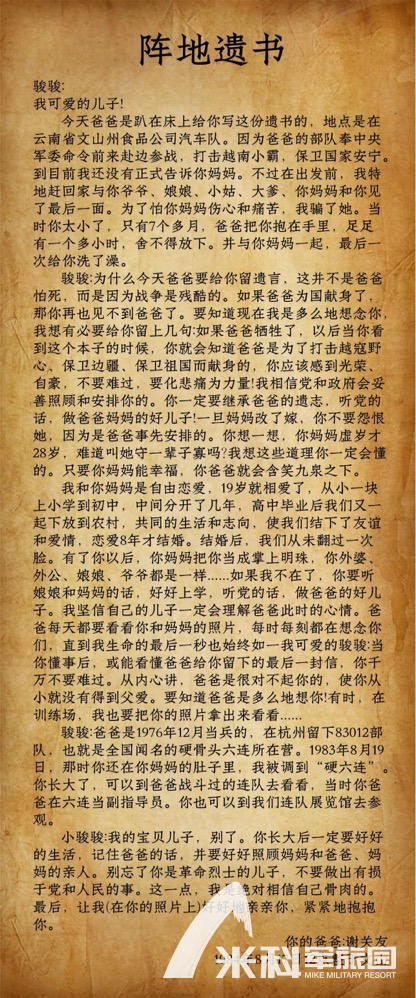 阵地遗书
骏骏:
我可爱的儿子!
今天爸爸是趴在床上给你写这份遗书的，地点是在
云南省文山州食品公司汽车队。因为爸爸的部队奉中央
军委命令前来赴边参战，打击越南小霸，保卫国家安宁。
到目前我还没有正式告诉你妈妈。不过在出发前，我特
地赶回家与你爷爷、娘娘、小姑、大爹、你妈妈和你见
了最后一面。为了怕你妈妈伤心和痛苦，我骗了她。当
时你太小了，只有7个多月，爸爸把你抱在手里，足足
有一个多小时，舍不得放下。并与你妈妈一起，最后一
次给你洗了澡。
骏骏:为什么今天爸爸要给你留遗言，这并不是爸爸
怕死，而是因为战争是残酷的。如果爸爸为国献身了，
那你再也见不到爸爸了。要知道现在我是多么地想念你，
我想有必要给你留上几句:如果爸爸牺牲了，以后当你看
到这个本子的时候，你就会知道爸爸是为了打击越寇野
心、保卫边疆、保卫祖国而献身的，你应该感到光荣、
自豪，不要难过，要化悲痛为力量!我相信党和政府会妥
善照顾和安排你的。你一定要继承爸爸的遗志，听党的
话，做爸爸妈妈的好儿子!一旦妈妈改了嫁，你不要怨恨
她，因为是爸爸事先安排的。你想一想，你妈妈虚岁才
28岁，难道叫她守一辈子寡吗?我想这些道理你一定会懂
的。只要你妈妈能幸福，你爸爸就会含笑九泉之下。
我和你妈妈是自由恋爱，19岁就相爱了，从小一块
上小学到初中，中间分开了几年，高中毕业后我们又一
起下放到农村，共同的生活和志向，使我们结下了友谊
和爱情，恋爱8年才结婚。结婚后，我们从未翻过一次
脸。有了你以后，你妈妈把你当成掌上明珠，你外婆、
外公、娘娘、爷爷都是一样......如果我不在了，你要听
娘娘和妈妈的话，好好上学，听党的话，做爸爸的好儿
子。我坚信自己的儿子一定会理解爸爸此时的心情。爸
爸每天都要看看你和妈妈的照片，每时每刻都在想念你
们，直到我生命的最后一秒也始终如一我可爱的骏骏:当
你懂事后，或能看懂爸爸给你留下的最后一封信，你千
万不要难过。从内心讲，爸爸是很对不起你的，使你从
小就没有得到父爱。要知道爸爸是多么地想你!有时，在
训练场，我也要把你的照片拿出来看看......
骏骏:爸爸是1976年12月当兵的，在杭州留下83012部
队，也就是全国闻名的硬骨头六连所在营。1983年8月19
日，那时你还在你妈妈的肚子里，我被调到“硬六连”。
你长大了，可以到爸爸战斗过的连队去看看，当时你爸
爸在六连当副指导员。你也可以到我们连队展览馆去参
观。
小骏骏:我的宝贝儿子，别了。你长大后一定要好好
的生活，记住爸爸的话，并要好好照顾妈妈和爸爸、妈
妈的亲人。别忘了你是革命烈士的儿子，不要做出有损
于党和人民的事。这一点，我是绝对相信自己骨肉的。
最后，让我(在你的照片上)好好地亲亲你，紧紧地抱抱
你。
你的爸爸:谢关友
米科军旅园
MIKE MILITARY RESORT